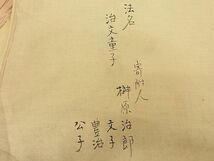 法名
治文童子
寄附人
榊原治郎
文子
豊治
公子